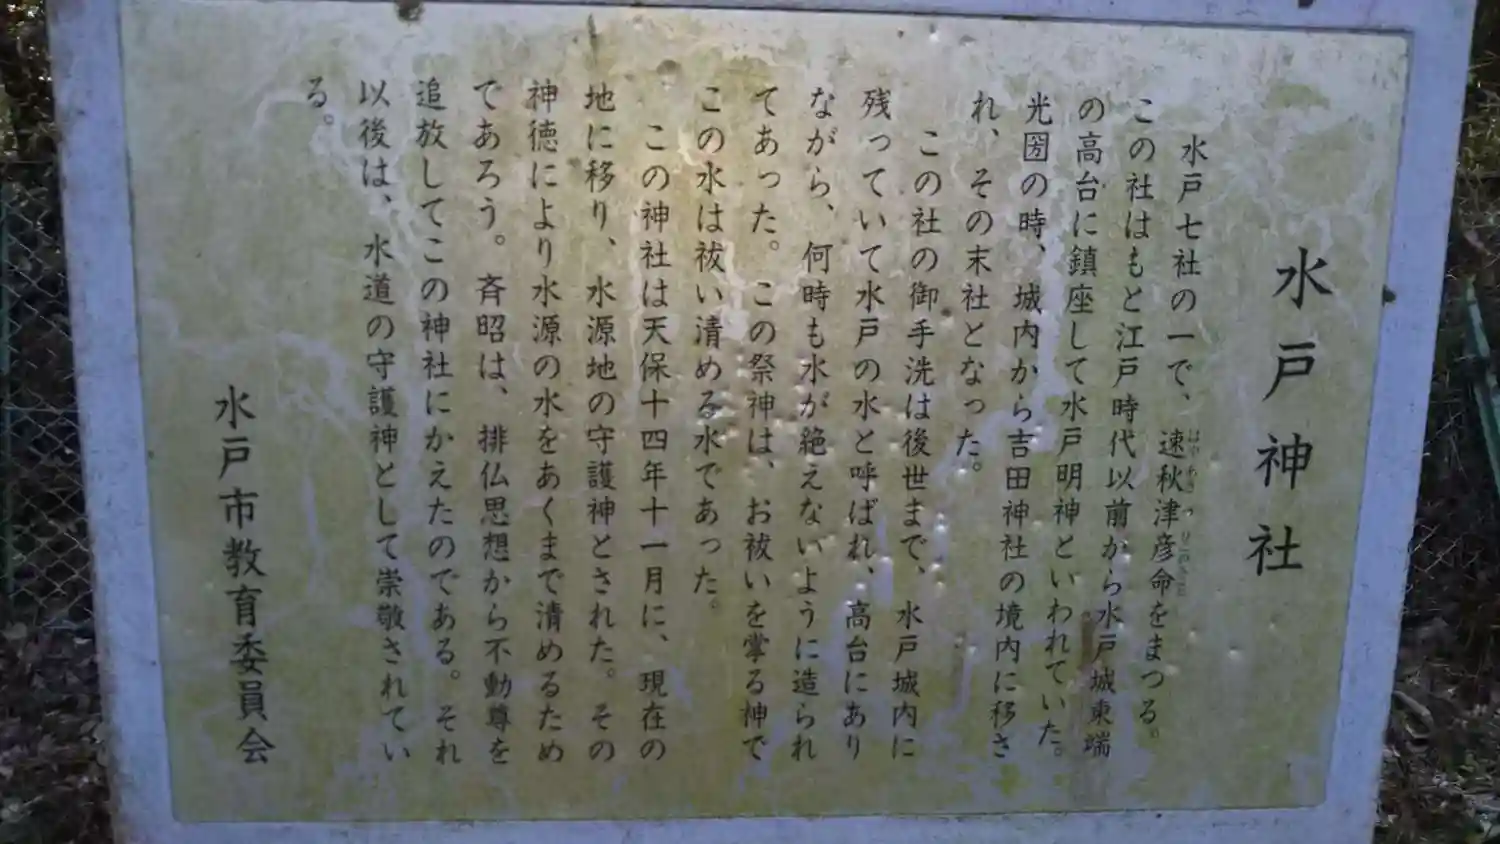 水戸神社
水戸七社の一で、速秋津彦命をまつる。
この社はもと江戸時代以前から水戸城東端
の高台に鎮座して水戸明神といわれていた。
光圀の時、城内から吉田神社の境内に移さ
れ、その末社となった。
この社の御手洗は後世まで、水戸城内に
残っていて水戸の水と呼ばれ、高台にあり
ながら、何時も水が絶えないように造られ
てあった。この祭神は、お祓いを掌る神で
この水は祓い清める水であった。
この神社は天保十四年十一月に、現在の
地に移り、水源地の守護神とされた。その
神徳により水源の水をあくまで清めるため
であろう。斉昭は、排仏思想から不動尊を
追放してこの神社にかえたのである。それ
以後は、水道の守護神として崇敬されてい
る。
水戸市教育委員会